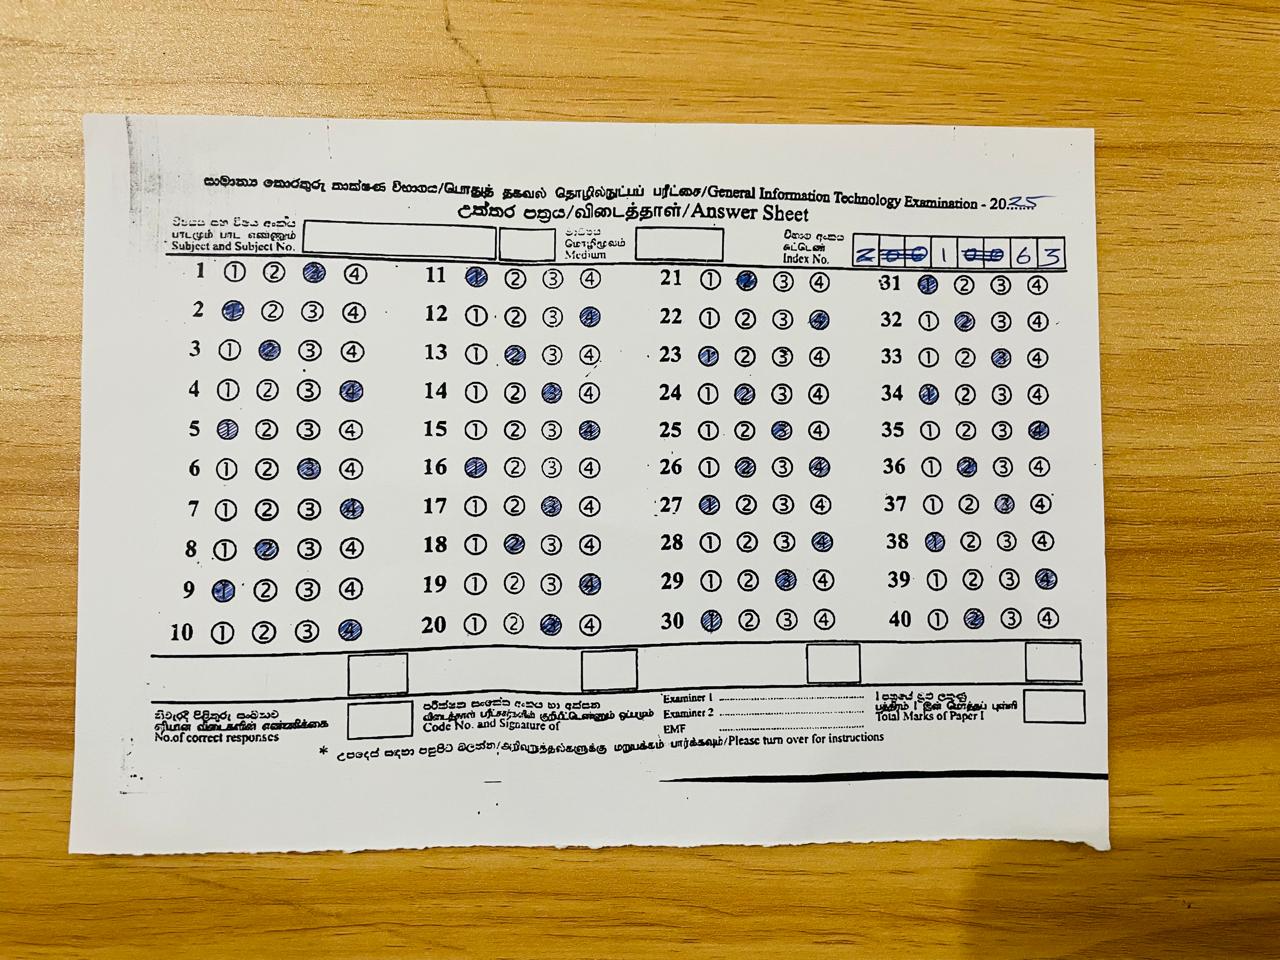 සාමාන්‍ය තොරතුරු තාක්ෂණ විභාගය/பொதுத் தகவல் தொழில்நுட்பப் பரீட்சை/General Information Technology Examination - 2025
උත්තර පත්‍රය/விடைத்தாள்/Answer Sheet
විෂයය සහ විෂය අංකය
பாடமும் பாட எண்ணும்
Subject and Subject No.
மொழிமூலம்
Medium
විභාග අංකය
சுட்டெண்
Index No.
1 63
1 ① ② ③ ④ 11 ① ② ③ ④ 21 ① ② ③ ④ 31 ① ② ③ ④
2 ① ② ③ ④ 12 ① ② ③ ④ 22 ① ② ③ ④ 32 ① ② ③ ④
3 ① ② ③ ④ 13 ① ② ③ ④ 23 ① ② ③ ④ 33 ① ② ③ ④
4 ① ② ③ ④ 14 ① ② ③ ④ 24 ① ② ③ ④ 34 ① ② ③ ④
5 ① ② ③ ④ 15 ① ② ③ ④ 25 ① ② ③ ④ 35 ① ② ③ ④
6 ① ② ③ ④ 16 ① ② ③ ④ 26 ① ② ③ ④ 36 ① ② ③ ④
7 ① ② ③ ④ 17 ① ② ③ ④ 27 ① ② ③ ④ 37 ① ② ③ ④
8 ① ② ③ ④ 18 ① ② ③ ④ 28 ① ② ③ ④ 38 ① ② ③ ④
9 ① ② ③ ④ 19 ① ② ③ ④ 29 ① ② ③ ④ 39 ① ② ③ ④
10 ① ② ③ ④ 20 ① ② ③ ④ 30 ① ② ③ ④ 40 ① ② ③ ④
නිවැරදි පිළිතුරු සංඛ්‍යාව
சரியான விடைகளின் எண்ணிக்கை
No.of correct responses
පරීක්ෂක සංකේත අංකය හා අත්සන
விடைத்தாள் பரீட்சகரின் குறியீட்டெண்ணும் ஒப்பமும்
Code No. and Signature of
Examiner 1
Examiner 2
EMF
I පත්‍රයේ මුළු ලකුණු
பத்திரம் I இன் மொத்தப் புள்ளி
Total Marks of Paper I
* උපදෙස් සඳහා පළපිට බලන්න/அறிவுறுத்தல்களுக்கு மறுபக்கம் பார்க்கவும்/Please turn over for instructions